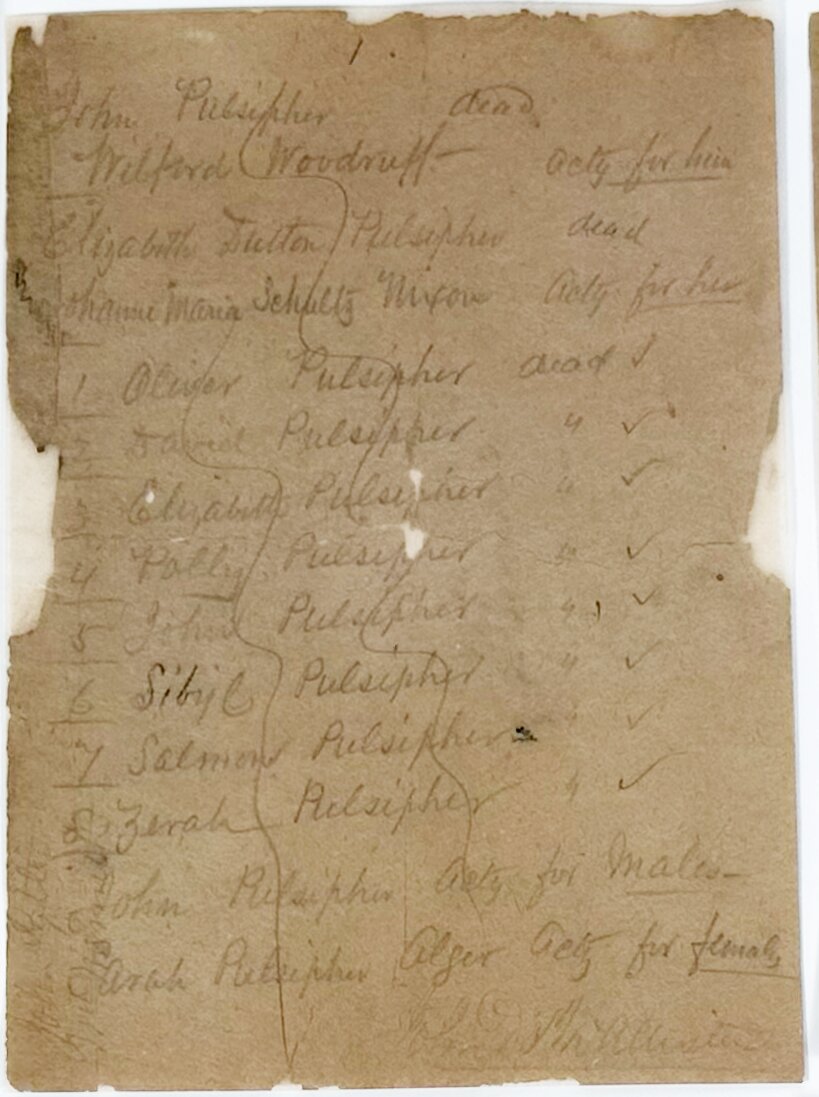 1
John Pulsipher dead
Wilford Woodruff - acty for him
Elizabeth Dutton Pulsipher dead
Johanne Maria Schultz Nixon acty for her
1 Oliver Pulsipher dead ✓
2 David Pulsipher " ✓
3 Elizabeth Pulsipher " ✓
4 Polly Pulsipher " ✓
5 John Pulsipher " ✓
6 Sibyl Pulsipher " ✓
7 Salmon Pulsipher " ✓
8 Zerah Pulsipher " ✓
John Pulsipher acty for Males -
Sarah Pulsipher Alger Acty for females
McAllister